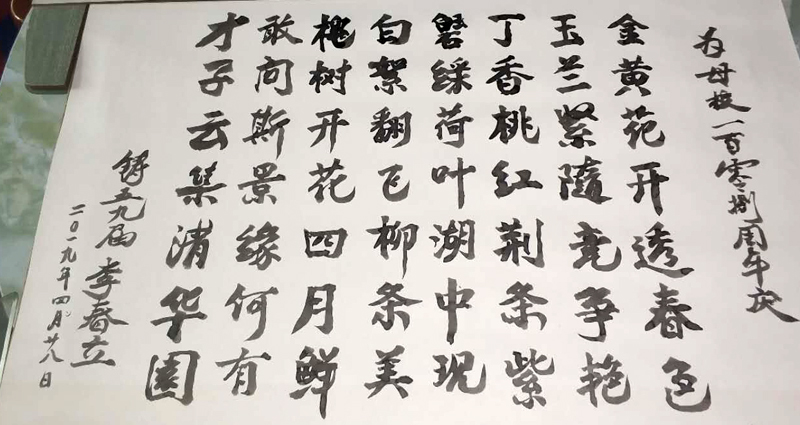 为母校一百零捌周年庆
金黄花开透春色
玉兰紧隨竞争艳
丁香桃红荆条紫
綵荷叶湖中现
白絮翻飞柳条美
桃树开花四月鲜
敢问斯景缘何有
才子云集清华园
铸五九届 李春立
二〇一九年四月廿八日